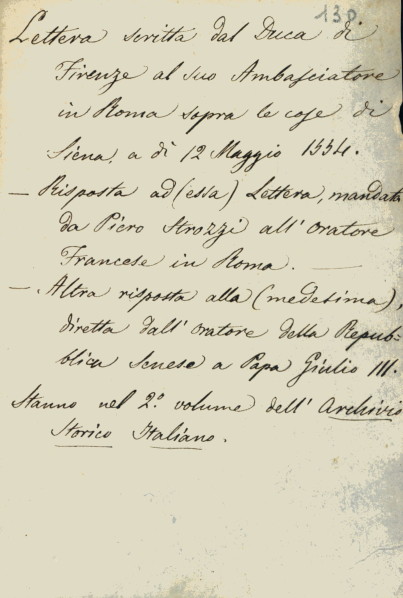 138
Lettera scritta dal Duca di
Firenze al suo Ambasciatore
in Roma sopra le cose di
Siena, a dì 12 Maggio 1554.
— Risposta ad (essa) Lettera, mandata
da Piero Strozzi all' Oratore
Francese in Roma. —
— Altra risposta alla (medesima),
diretta dall' Oratore della Repub=
blica senese a Papa Giulio III.
Stanno nel 2.º volume dell' Archivio
Storico Italiano.